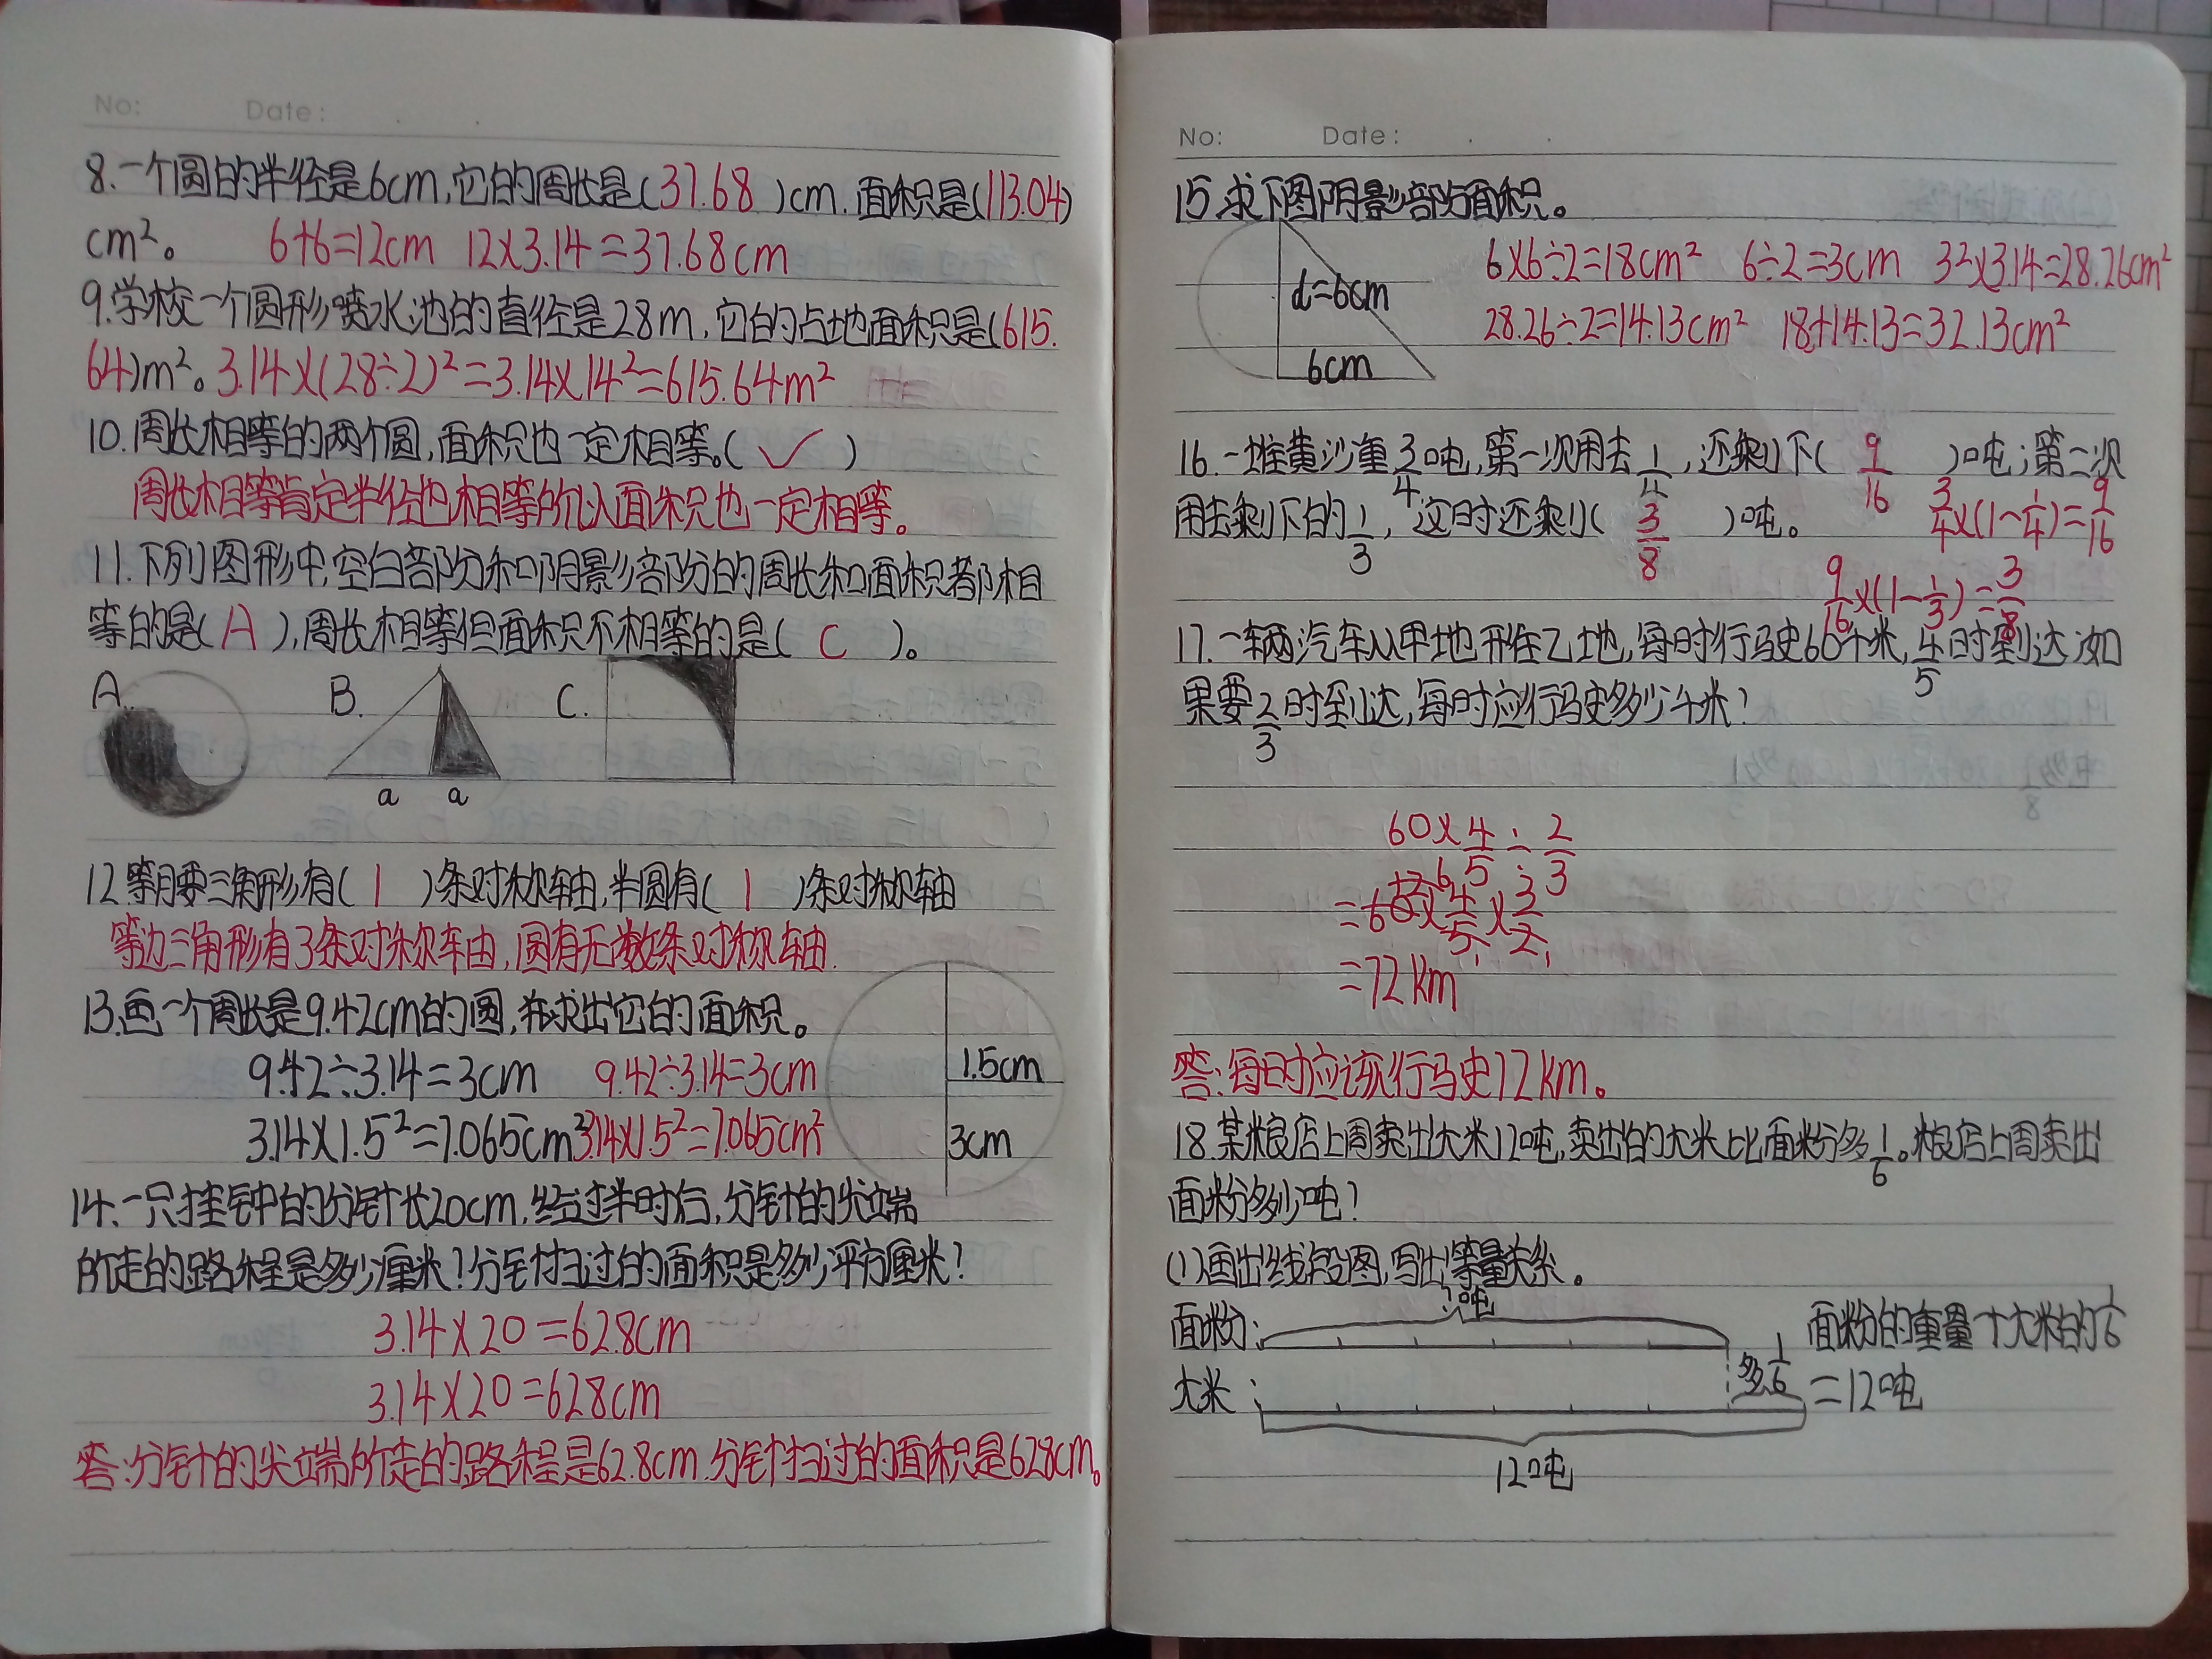 No: Date:
8.一个圆的半径是6cm,它的周长是(37.68)cm.面积是(113.04)
cm²。 6+6=12cm 12×3.14=37.68cm
9.学校一个圆形喷水池的直径是28m,它的占地面积是(615.
64)m²。3.14×(28÷2)²=3.14×14²=615.64m²
10.周长相等的两个圆,面积也一定相等。(✓)
周长相等肯定半径也相等所以面积也一定相等。
11.下列图形中,空白部分和阴影部分的周长和面积都相
等的是(A),周长相等但面积不相等的是(C)。
A. B. C.
a a
12.等腰三角形有(1)条对称轴,半圆有(1)条对称轴
等边三角形有3条对称轴,圆有无数条对称轴.
13.画一个周长是9.42cm的圆,并求出它的面积。
9.42÷3.14=3cm 9.42÷3.14=3cm
3.14×1.5²=7.065cm² 3.14×1.5²=7.065cm²
1.5cm
3cm
14.一只挂钟的分针长20cm,经过半时后,分针的尖端
所走的路程是多少厘米?分针扫过的面积是多少平方厘米?
3.14×20=62.8cm
3.14×20=628cm
答:分针的尖端所走的路程是62.8cm.分针扫过的面积是628cm。
No: Date:
15.求下图阴影部分面积。
d=6cm
6cm
6×6÷2=18cm² 6÷2=3cm 3²×3.14=28.26cm²
28.26÷2=14.13cm² 18+14.13=32.13cm²
16.一堆黄沙重3/4吨,第一次用去1/4,还剩下(9/16)吨;第二次
用去剩下的1/3,这时还剩(3/8)吨。 3/4×(1-1/4)=9/16
9/16×(1-1/3)=3/8
17.一辆汽车从甲地开往乙地,每时行驶60千米,4/5时到达.如
果要2/3时到达,每时应行驶多少千米?
60×4/5÷2/3
=60×4/5×3/2
=72km
答:每时应该行驶72km。
18.某粮店上周卖出大米12吨,卖出的大米比面粉多1/6。粮店上周卖出
面粉多少吨?
(1)画出线段图,写出等量关系。
?吨
面粉: 面粉的重量+大米的1/6
多1/6
大米: =12吨
12吨